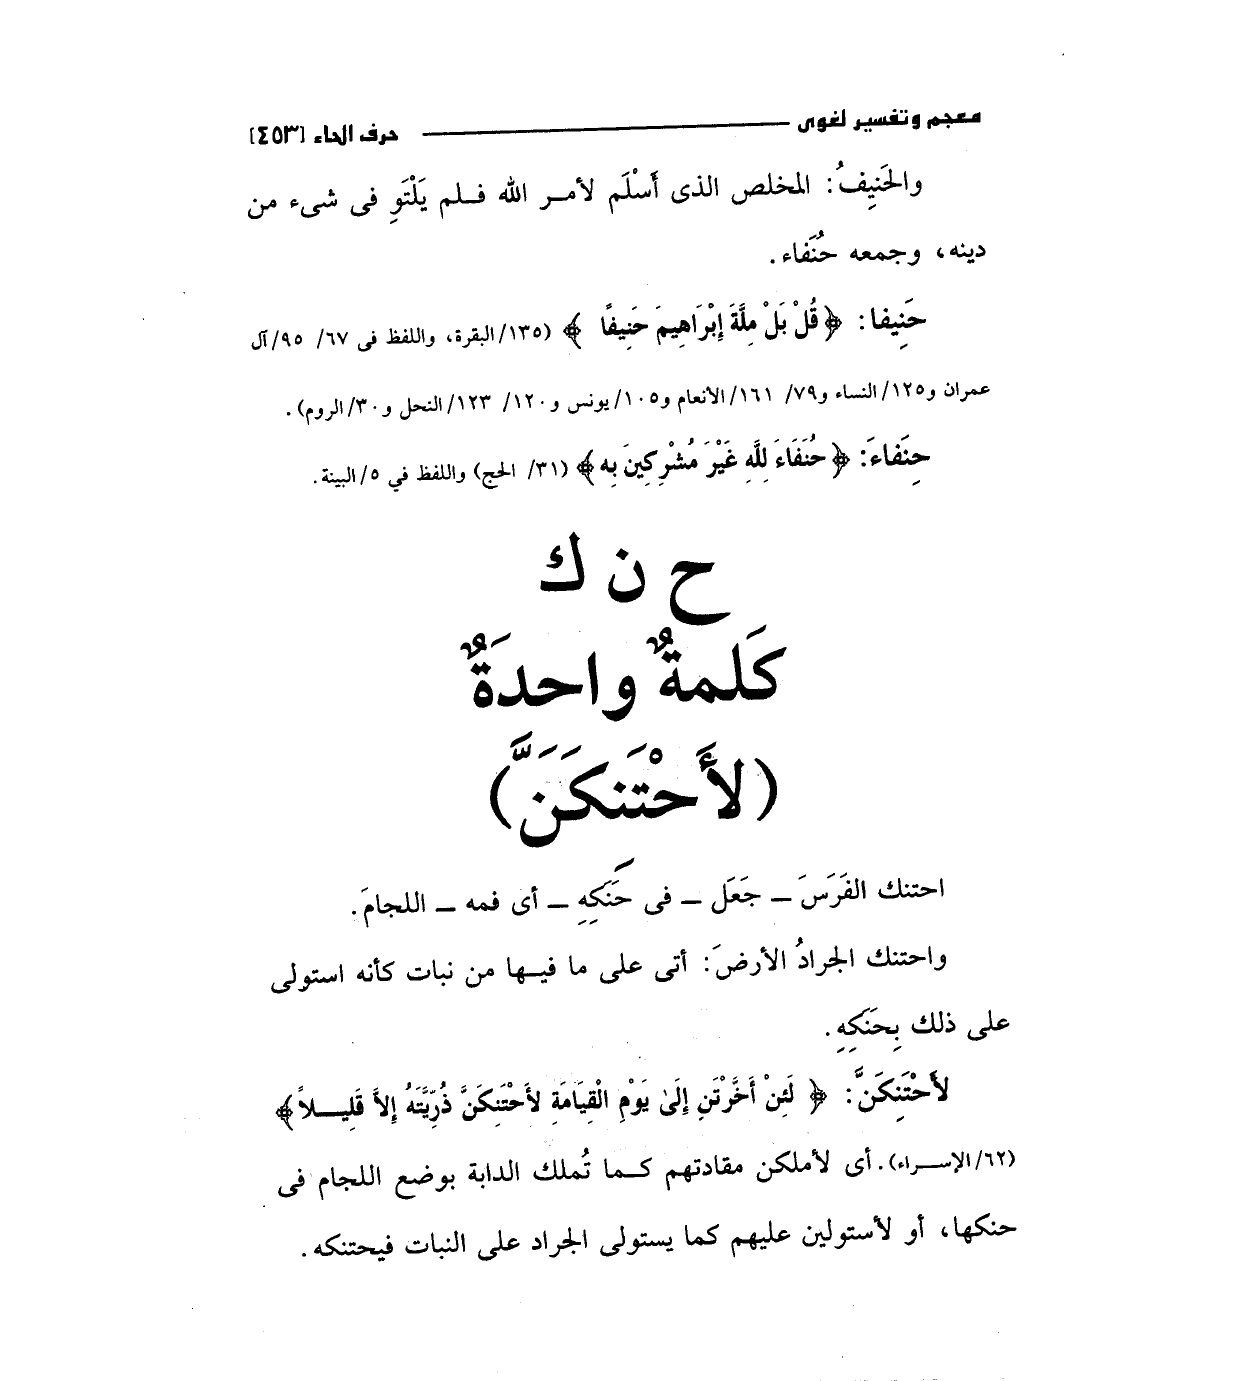 معجم وتفسير لغوى حرف الحاء [٤٥٣]
والحَنِيِفُ: المخلص الذى أَسْلَم لأمـر الله فـلم يَلْتَوِ فى شىء من
دينه، وجمعه حُنَفاء.
حَنِيفا: ﴿قُلْ بَلْ مِلَّةَ إِبْرَاهِيمَ حَنِيفًا ﴾ (١٣٥/البقرة، واللفظ فى ٦٧/ ٩٥/آل
عمران و١٢٥/النساء و٧٩/ ١٦١/الأنعام و١٠٥/يونس و١٢٠/ ١٢٣/النحل و٣٠/الروم).
حِنَفاءَ: ﴿حُنَفَاءَ لِلَّهِ غَيْرَ مُشْرِكِينَ بِه﴾ (٣١/ الحج) واللفظ في ٥/البينة.
ح ن ك
كَلمةٌ واحدَةٌ
(لأَحْتَنكَنَّ)
احتنك الفَرَسَ ــ جَعَل ــ فى حَنَكِهِ ــ أى فمه ــ اللجامَ.
واحتنك الجرادُ الأرضَ: أتى على ما فيـها من نبات كأنه استولى
على ذلك بِحَنَكِهِ.
لأَحْتَنِكَنَّ: ﴿ لَئِنْ أَخَّرْتَنِ إِلَىٰ يَوْمِ الْقِيَامَةِ لأَحْتَنِكَنَّ ذُرِّيَّتَهُ إِلاَّ قَلِيـــلاً﴾
(٦٢/الإسـراء). أى لأملكن مقادتهم كـما تُملك الدابة بوضع اللجام فى
حنكها، أو لأستولين عليهم كما يستولى الجراد على النبات فيحتنكه.